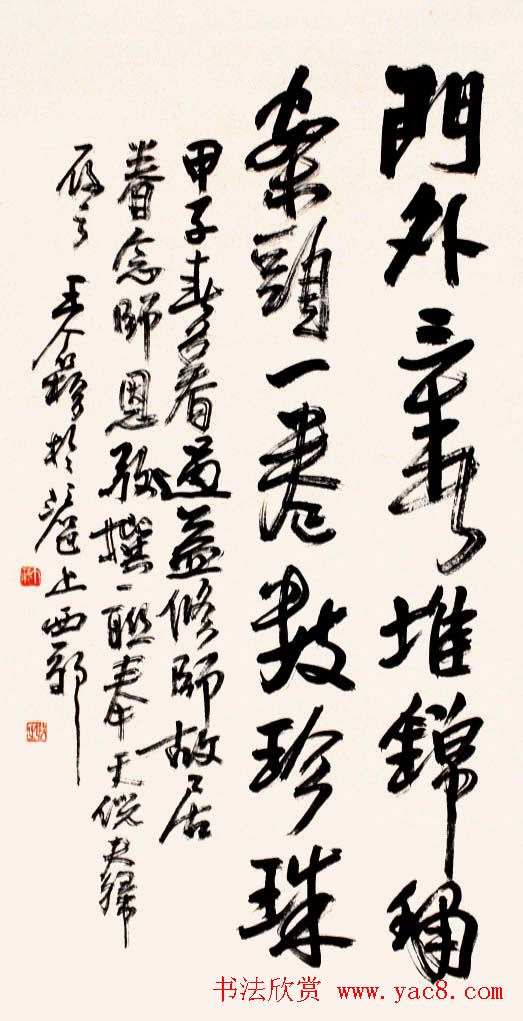 門外三春堆錦繡
案頭一卷數珍珠
甲子春暮過益修師故居
眷念師恩敬撰一聯奉天倪夫婦
正之王个簃於滬上西郊
书法欣赏 www.yac8.com